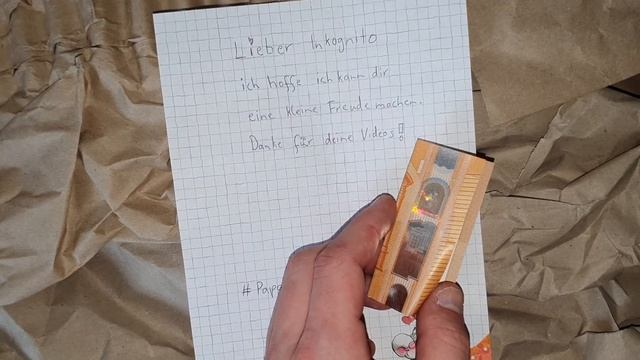 Lieber Inkognito
ich hoffe ich kann dir
eine kleine Freude machen.
Danke für deine Videos!